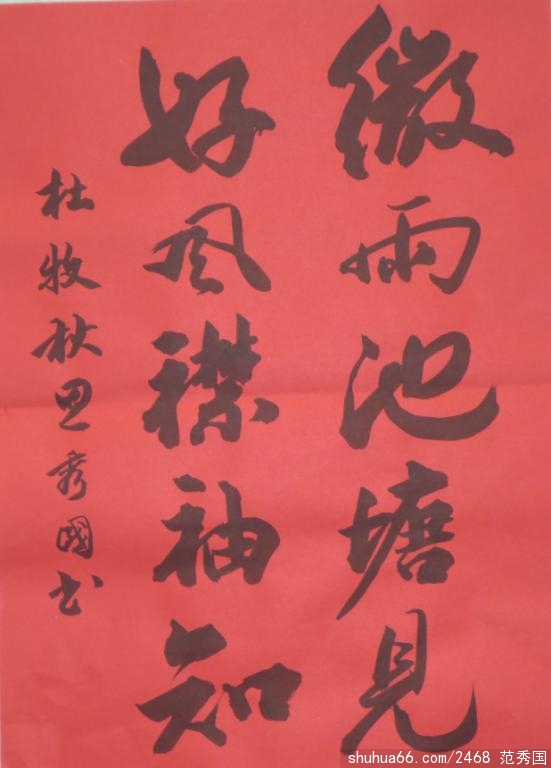 微雨池塘見
好风襟袖知
杜牧秋思秀國书
shuhua66.com/2468 范秀国